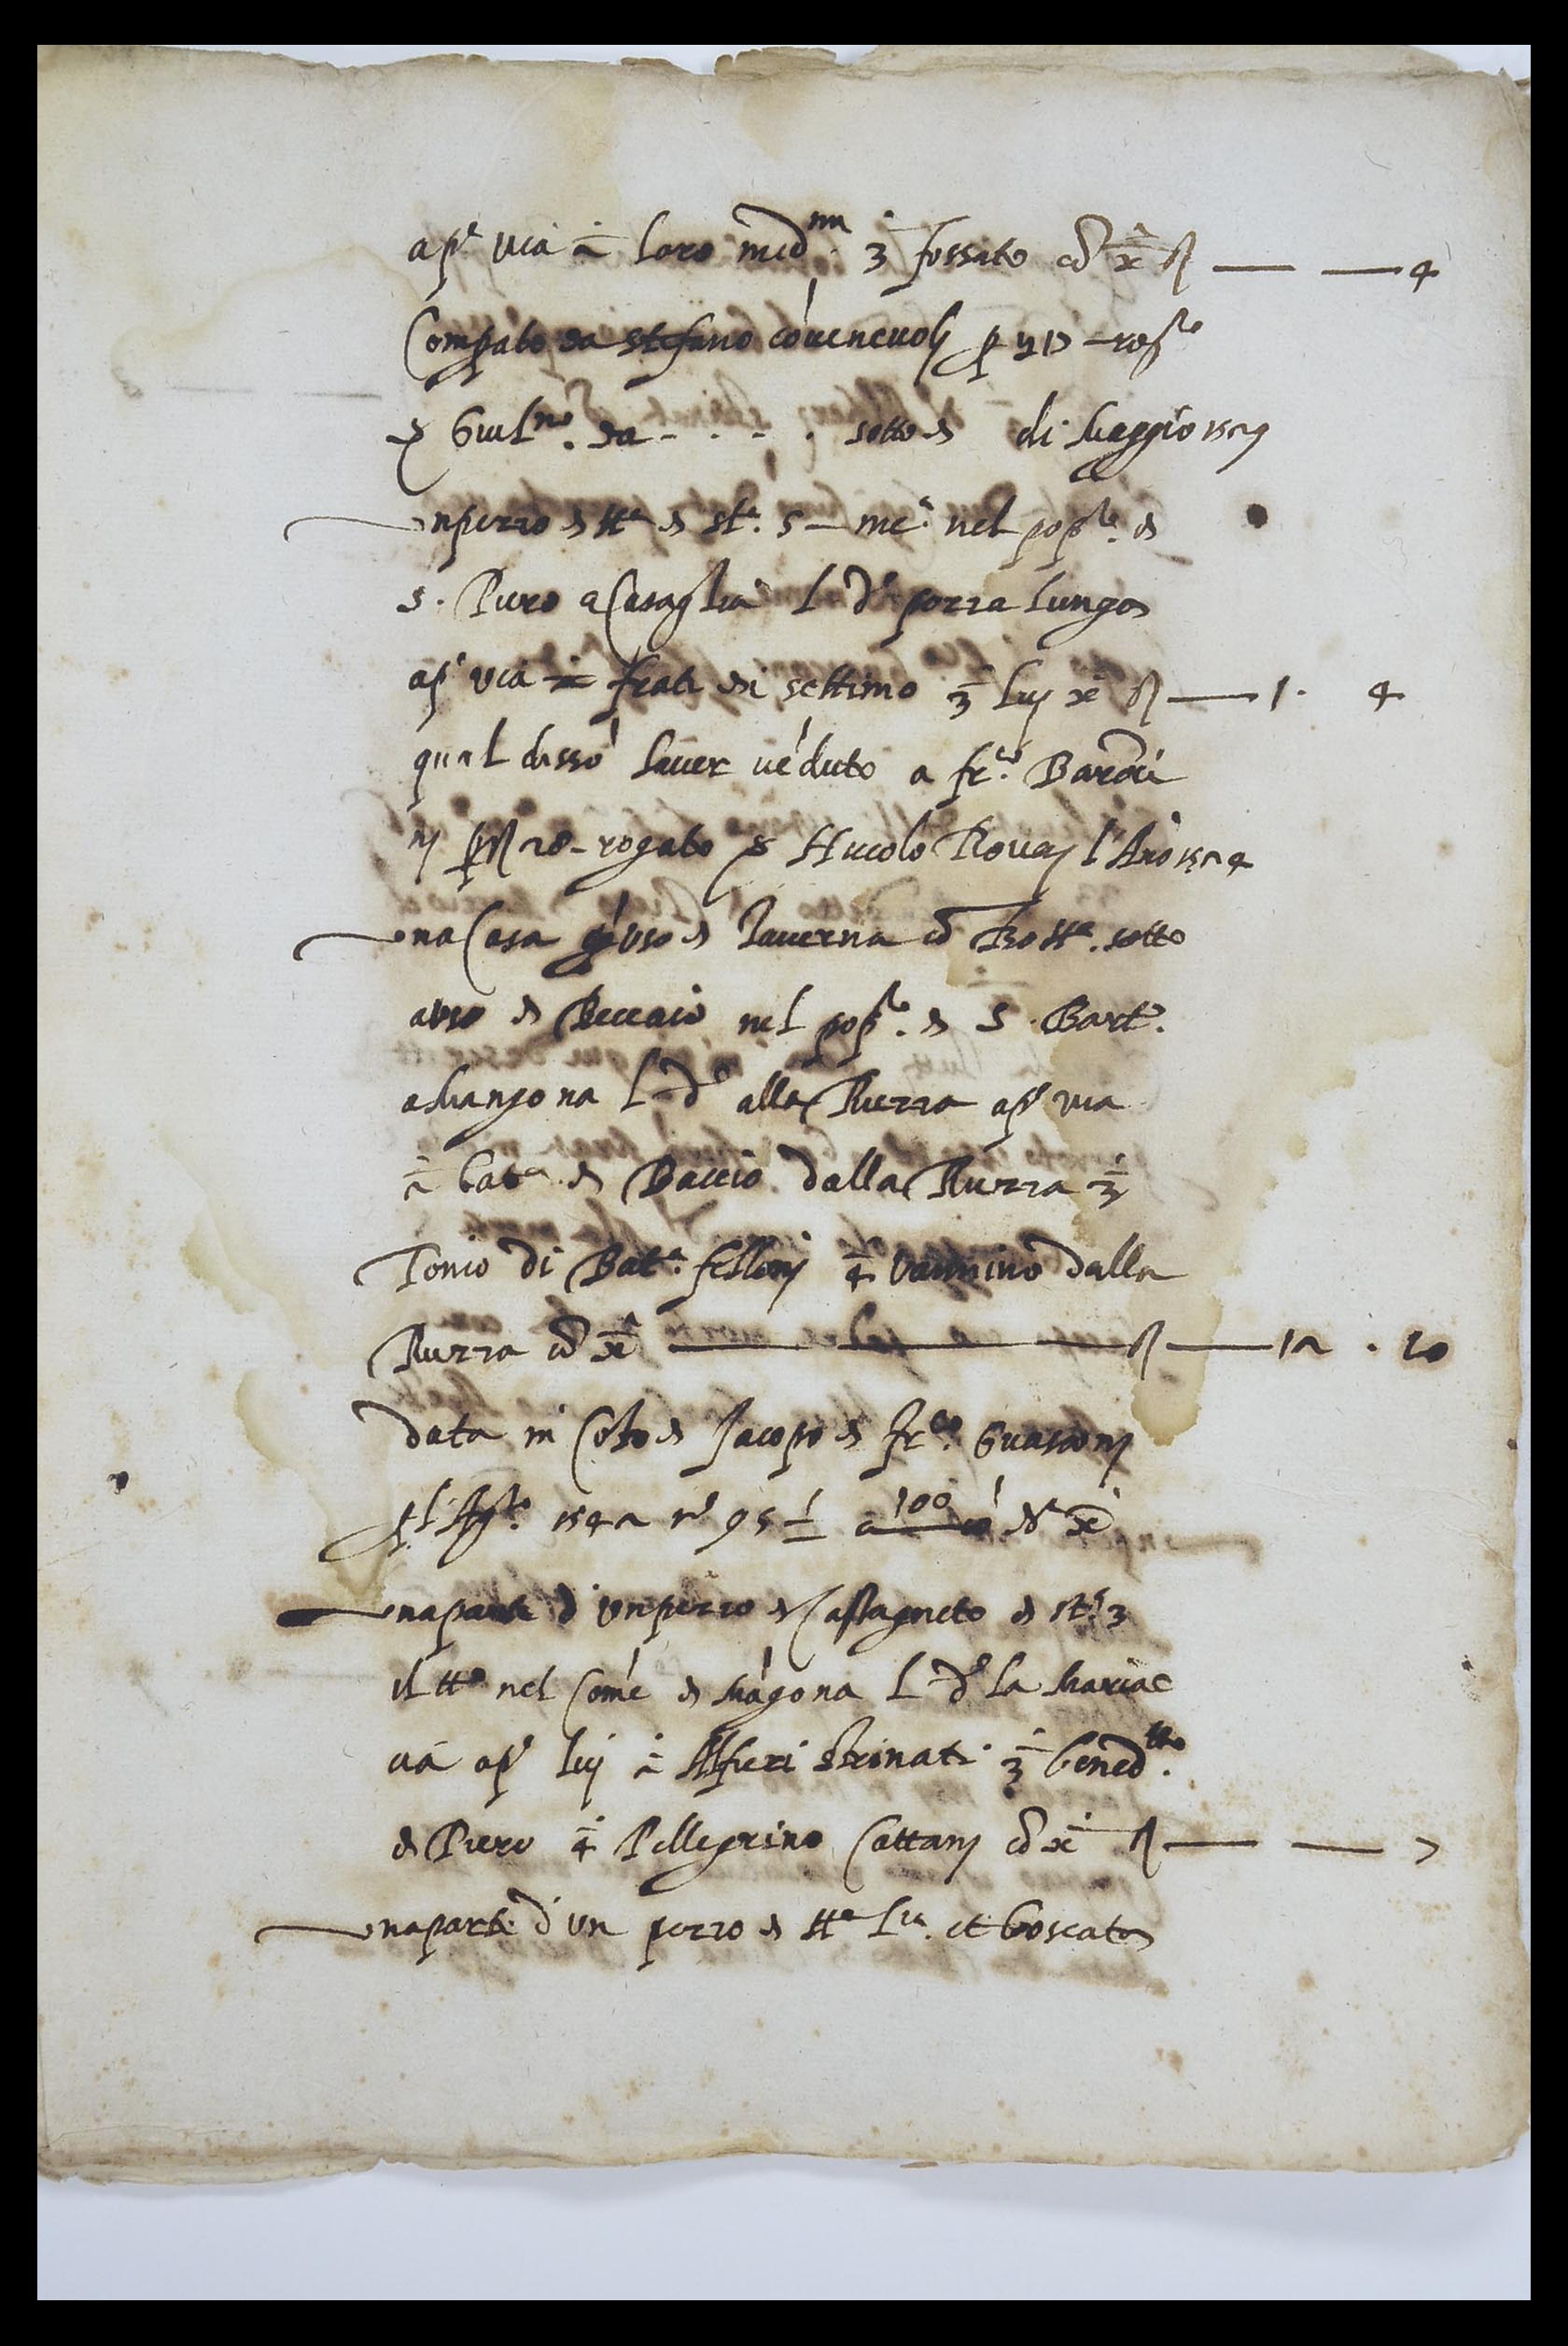 ap.º via 2 loro med.mi 3 fossato cō x fl — — 4
Comprato da stefano cōvenevoli p
Giul.no da - . - . sotto di di Maggio 1529
un pezzo di tt.a di st.a 5 — me.o nel pop.lo di
S. Piero a Casaglia l. d.o pozza lunga
ap.º via 2 frati di settimo 3 luj x fl — 1. 4
qual disse haver vēduto a fr.co Baron
nj p fl 28 - rogato s Niccolo Rovaj l'Año 1524
una Casa p uso di Taverna cō Bott.a sotto
a uso di Beccaio nel pop.lo di S. Bart.o
a Mangona l. d.o alla Rurza ap.º via
2 Bat.a di Baccio dalla Rurza 3
Tonio di Bat.a felloni 4 Vannino dalla
Rurza cō x fl — 12 . 10
data in Cōto di Jacopo di fr.co Guasconj
l'Ag.to 1542 n.o 95 — a 100
una parte d'un pezzo di Castagneto di st.a 3
il tt.o nel Comē di Māgona l. d.o la Marie
va ap.º luj 2 Alfieri strinati 3 Bened.tto
di Piero 4 Pellegrino Cattanj cō x fl — — 7
una parte d'un pezzo di tt.a l.ia et boscata